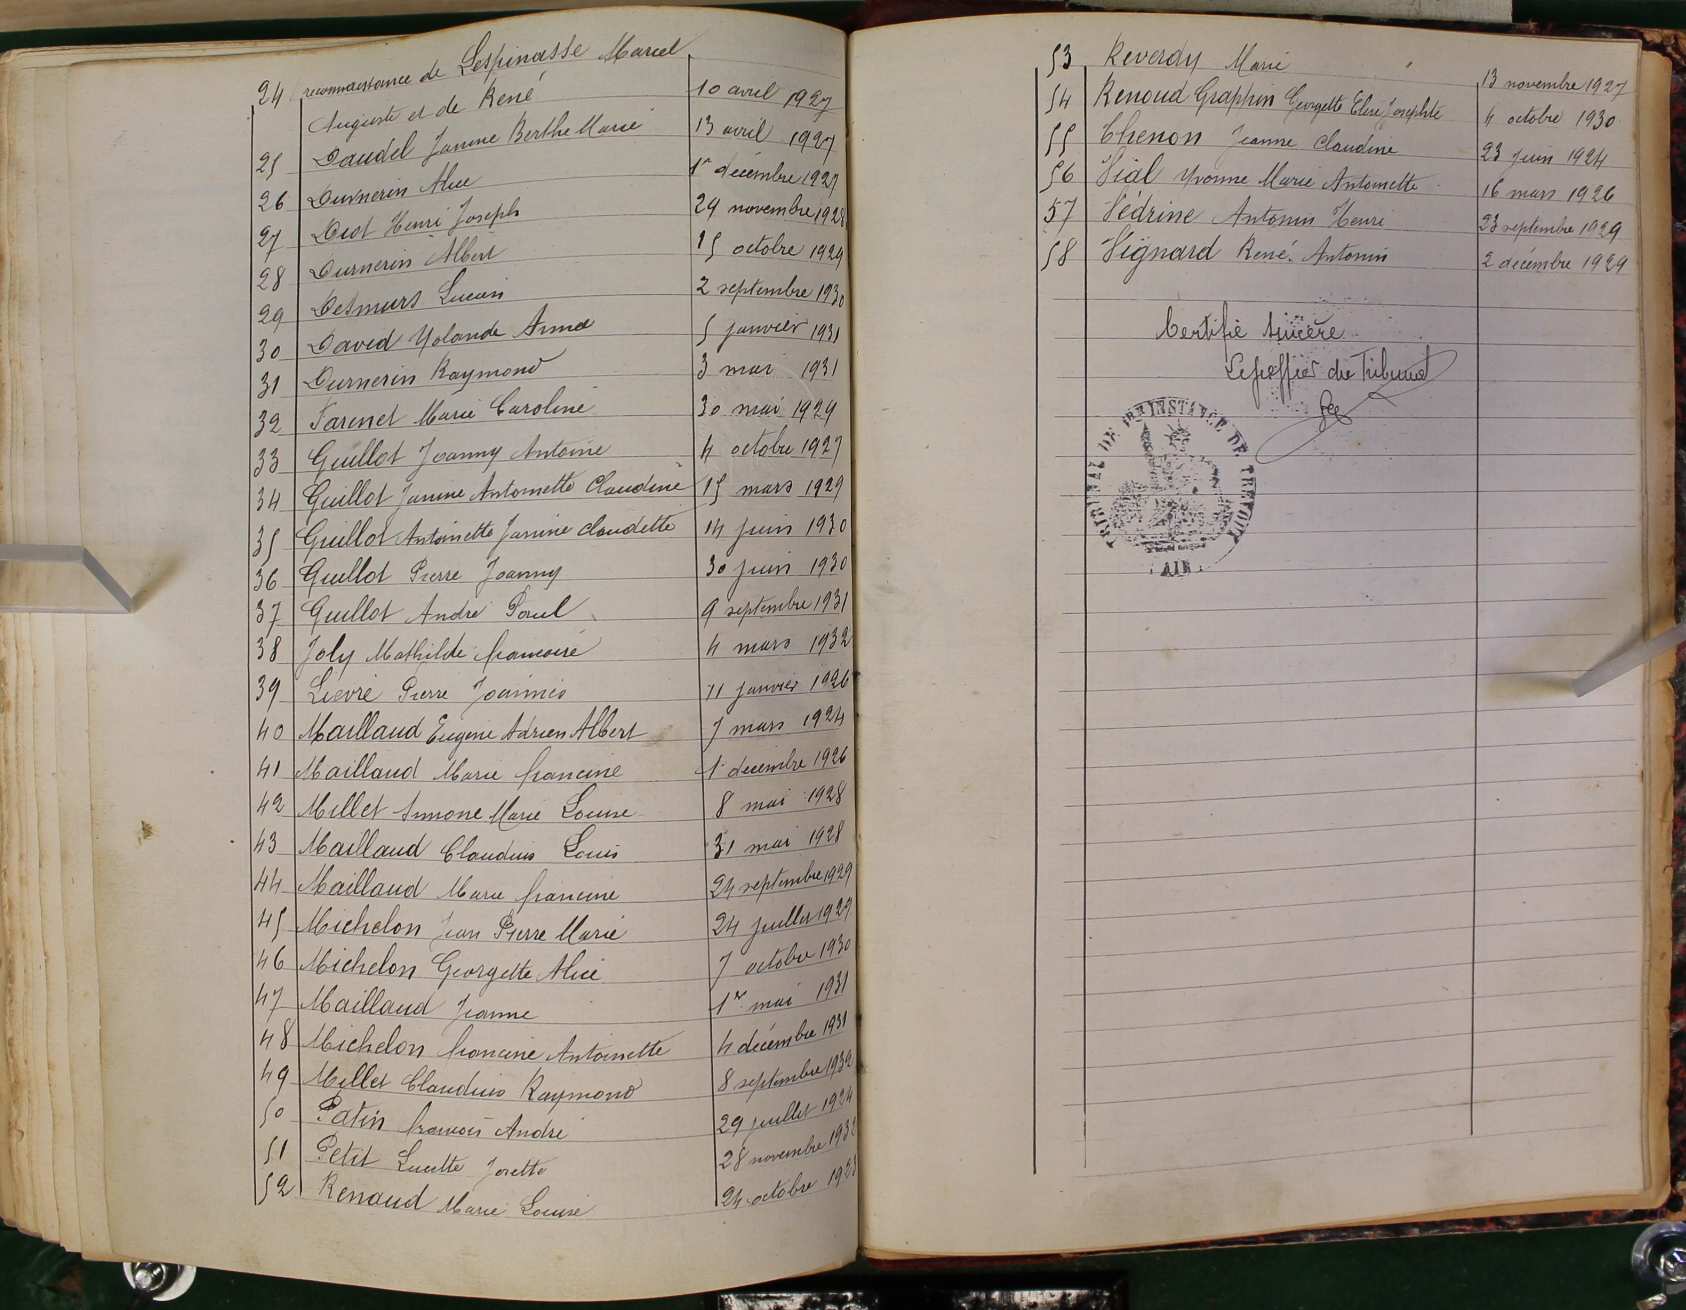 24 reconnaissance de Lespinasse Marcel
Auguste et de René 10 avril 1927
25 Daudel Janine Berthe Marie 13 avril 1927
26 Durnerin Alice 1er décembre 1927
27 Diot Henri Joseph 29 novembre 1928
28 Durnerin Albert 15 octobre 1929
29 Desmurs Lucien 2 septembre 1930
30 David Yolande Anna 5 janvier 1931
31 Durnerin Raymond 3 mai 1931
32 Farenet Marie Caroline 30 mai 1929
33 Guillot Joanny Antoine 4 octobre 1927
34 Guillot Janine Antoinette Claudine 15 mars 1929
35 Guillot Antoinette Janine Claudette 14 juin 1930
36 Guillot Pierre Joanny 30 juin 1930
37 Guillot André Paul 9 septembre 1931
38 Joly Mathilde Francoise 4 mars 1932
39 Lievre Pierre Joannes 11 janvier 1926
40 Maillaud Eugene Adrien Albert 7 mars 1924
41 Maillaud Marie francine 1er decembre 1926
42 Millet Simone Marie Louise 8 mai 1928
43 Maillaud Claudius Louis 31 mai 1928
44 Maillaud Marie francine 24 septembre 1929
45 Michelon Jean Pierre Marie 24 juillet 1929
46 Michelon Georgette Alice 7 octobre 1930
47 Maillaud Jeanne 1er mai 1931
48 Michelon francine Antoinette 4 décembre 1931
49 Millet Claudius Raymond 8 septembre 1932
50 Patin francois André 29 juillet 1924
51 Petit Lucette Josette 28 novembre
52 Renaud Marie Louise 24 octobre
53 Reverdy Marie 13 novembre 1927
54 Renoud Grappin Georgette Josephte 4 octobre 1930
55 Thenon Jeanne Claudine 23 juin 1924
56 Vial Yvonne Marie Antoinette 16 mars 1926
57 Vedrine Antonin Henri 23 septembre 1929
58 Vignard René Antonin 2 décembre 1929
Certifié sincère
Le greffier du Tribunal
TRIBUNAL DE 1ERE INSTANCE DE TREVOUX
AIN